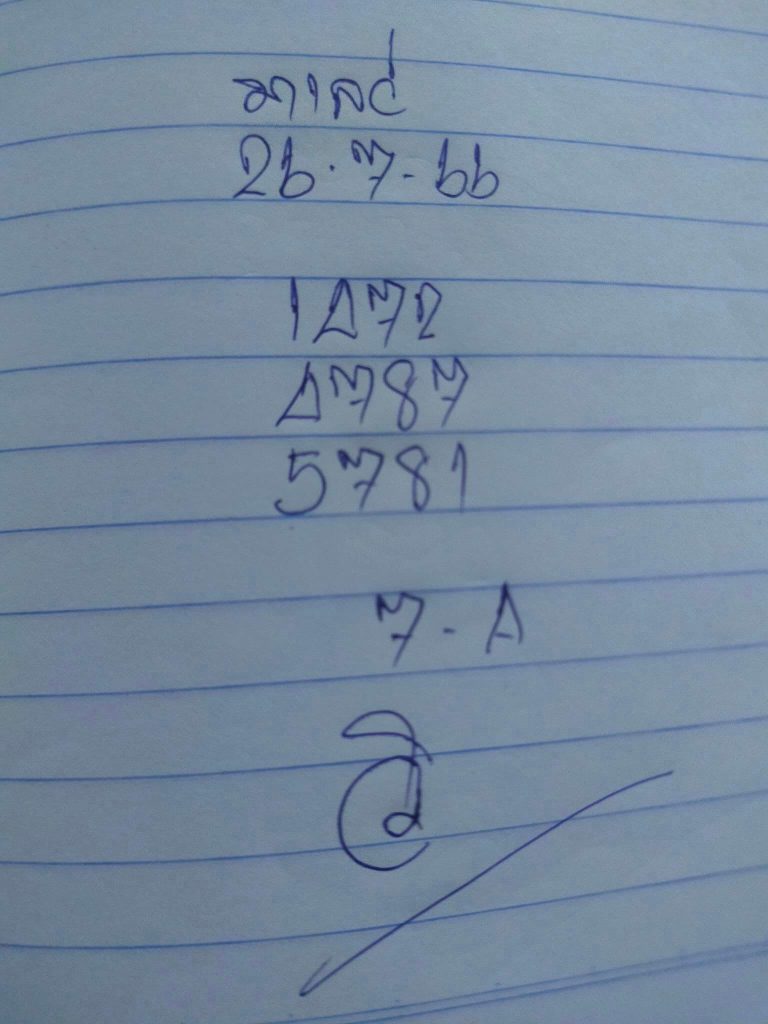 มาเลย์
26.7-66
1472
4787
5781
7-4